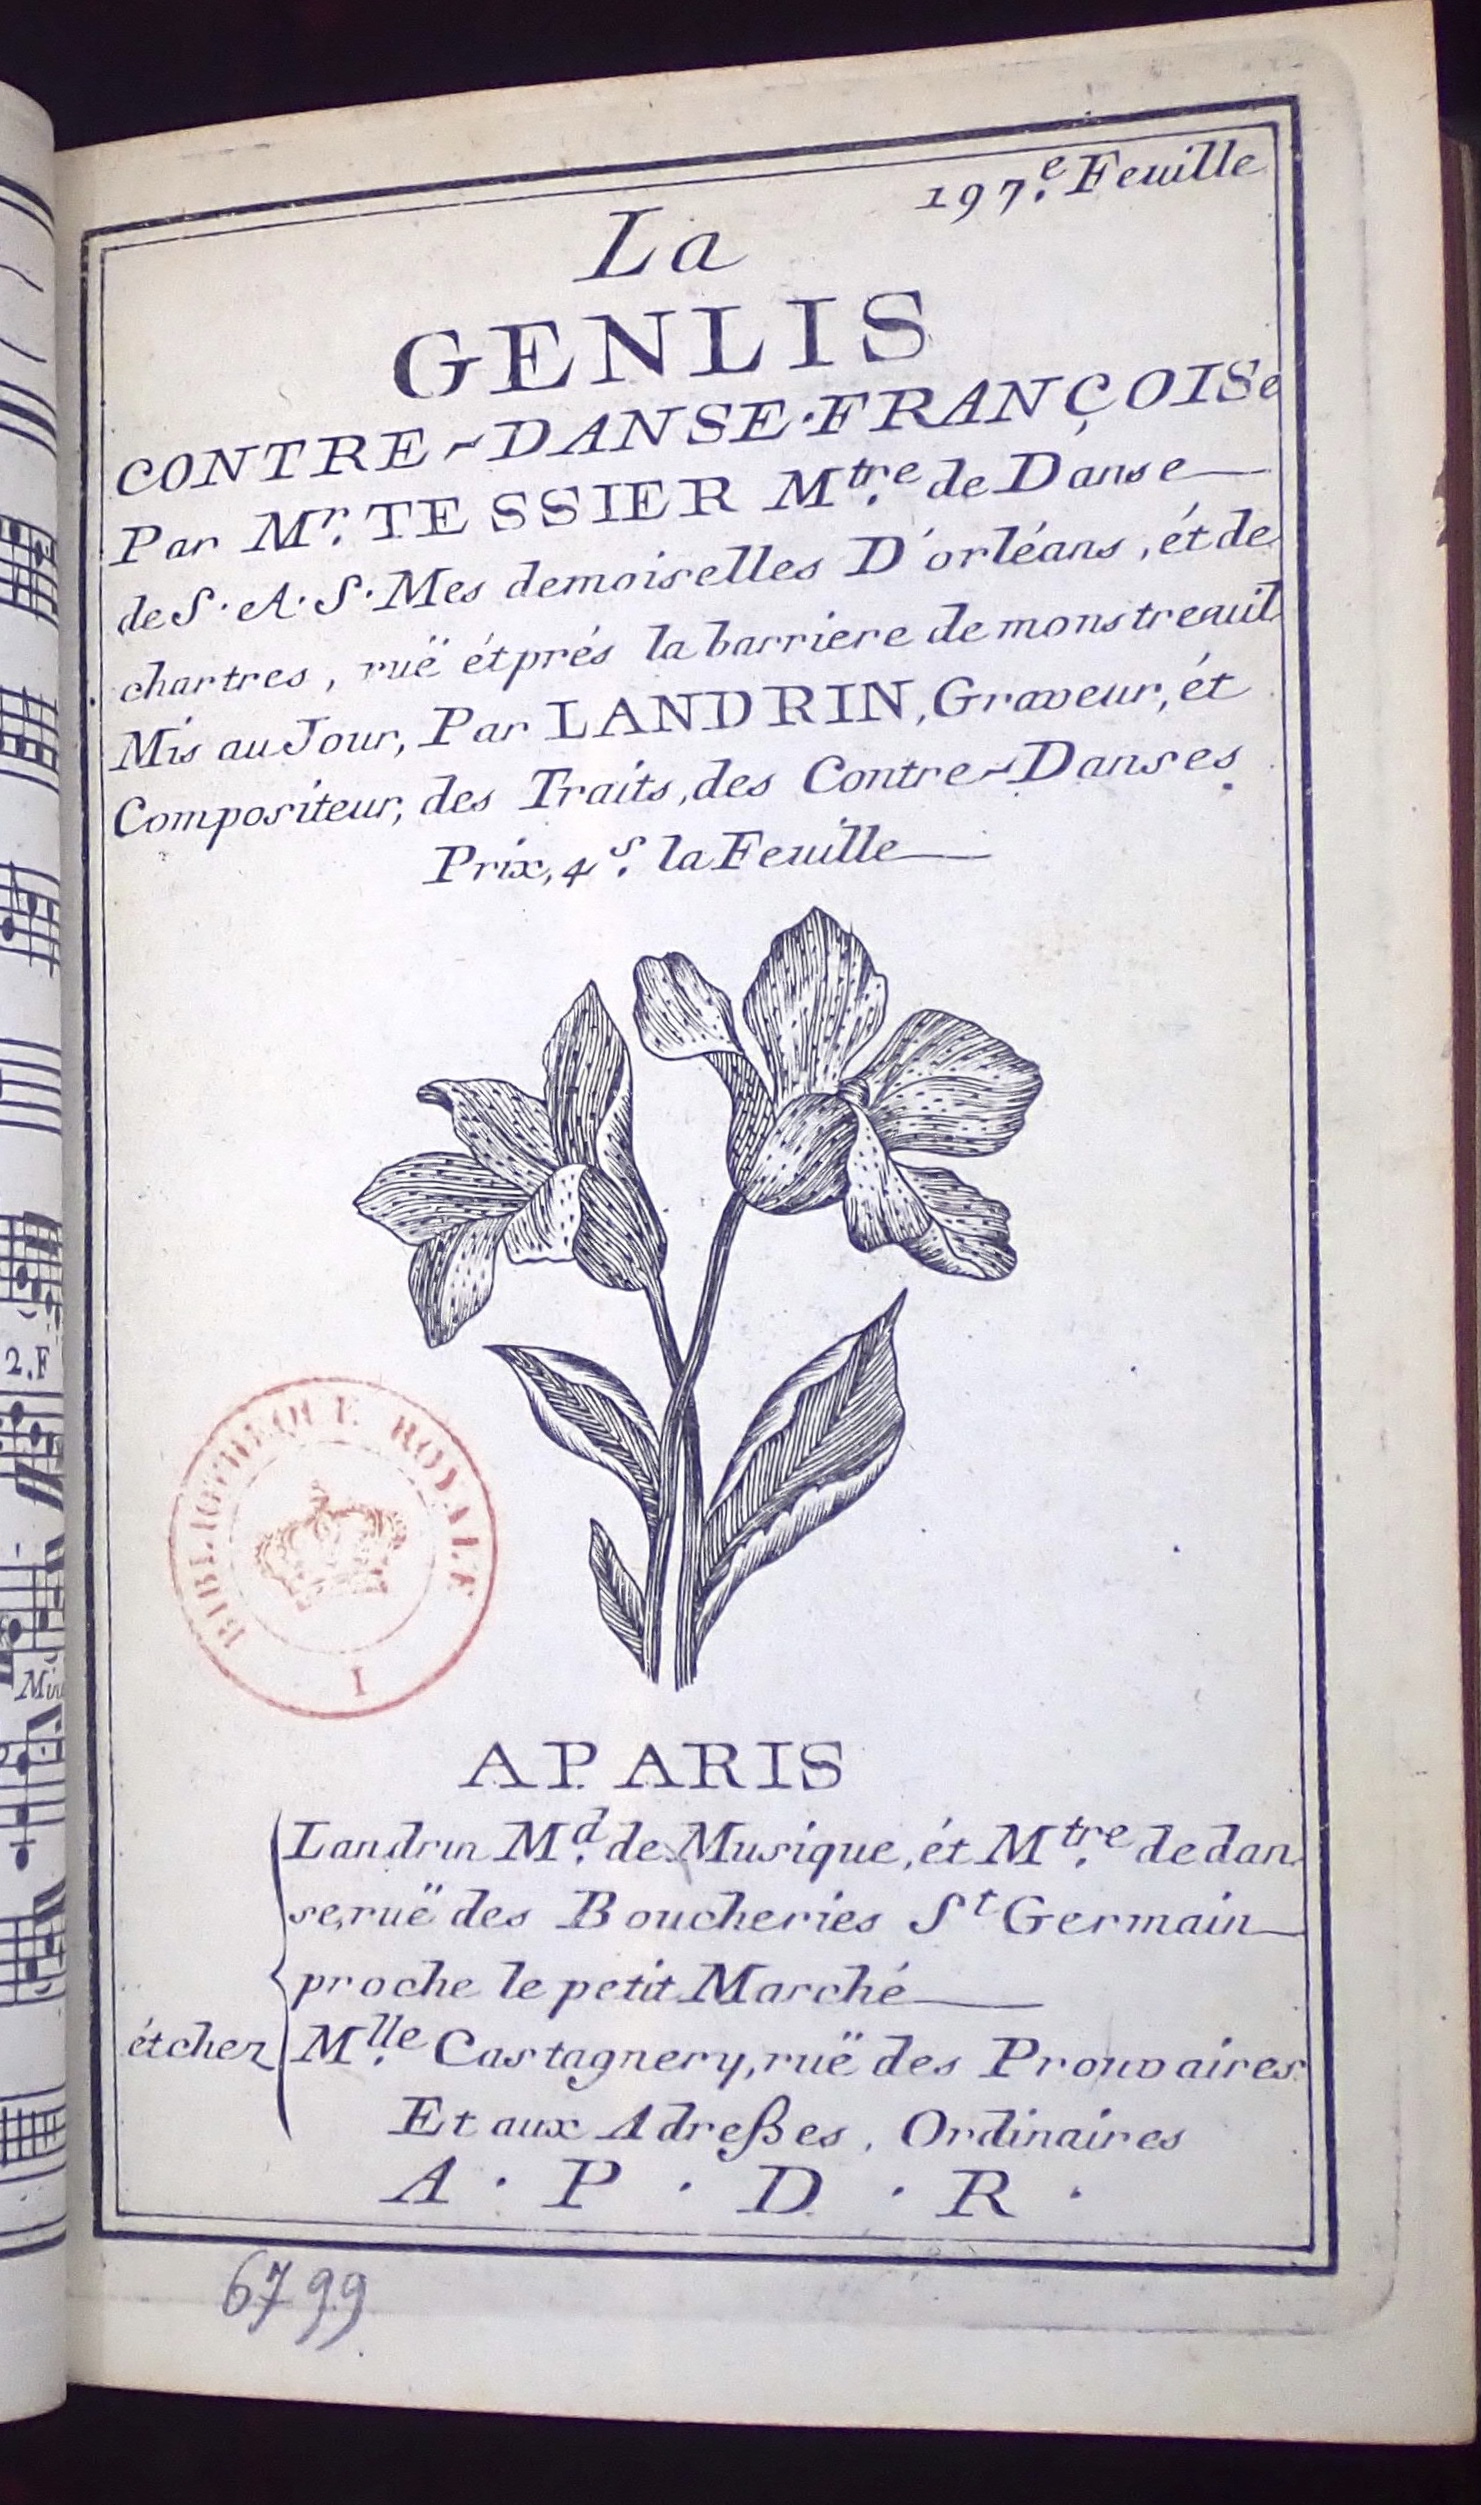 197.e Feuille
La
GENLIS
CONTRE-DANSE·FRANÇOISe
Par Mr. TESSIER Mtre. de Danse
de S·A·S·Mes demoiselles D'orléans, ét de
chartres, ruë ét prés la barriere de monstreauil
Mis au Jour, Par LANDRIN, Graveur, ét
Compositeur, des Traits, des Contre-Danses.
Prix, 4 s. la Feuille
BIBLIOTHEQUE ROYALE
I
A PARIS
Landrin Md. de Musique, ét Mtre. de dan
se, ruë des Boucheries St Germain
proche le petit Marché
ét chez Mlle. Castagnery, ruë des Prouvaires
Et aux Adreßes, Ordinaires
A · P · D · R ·
6799
2.F